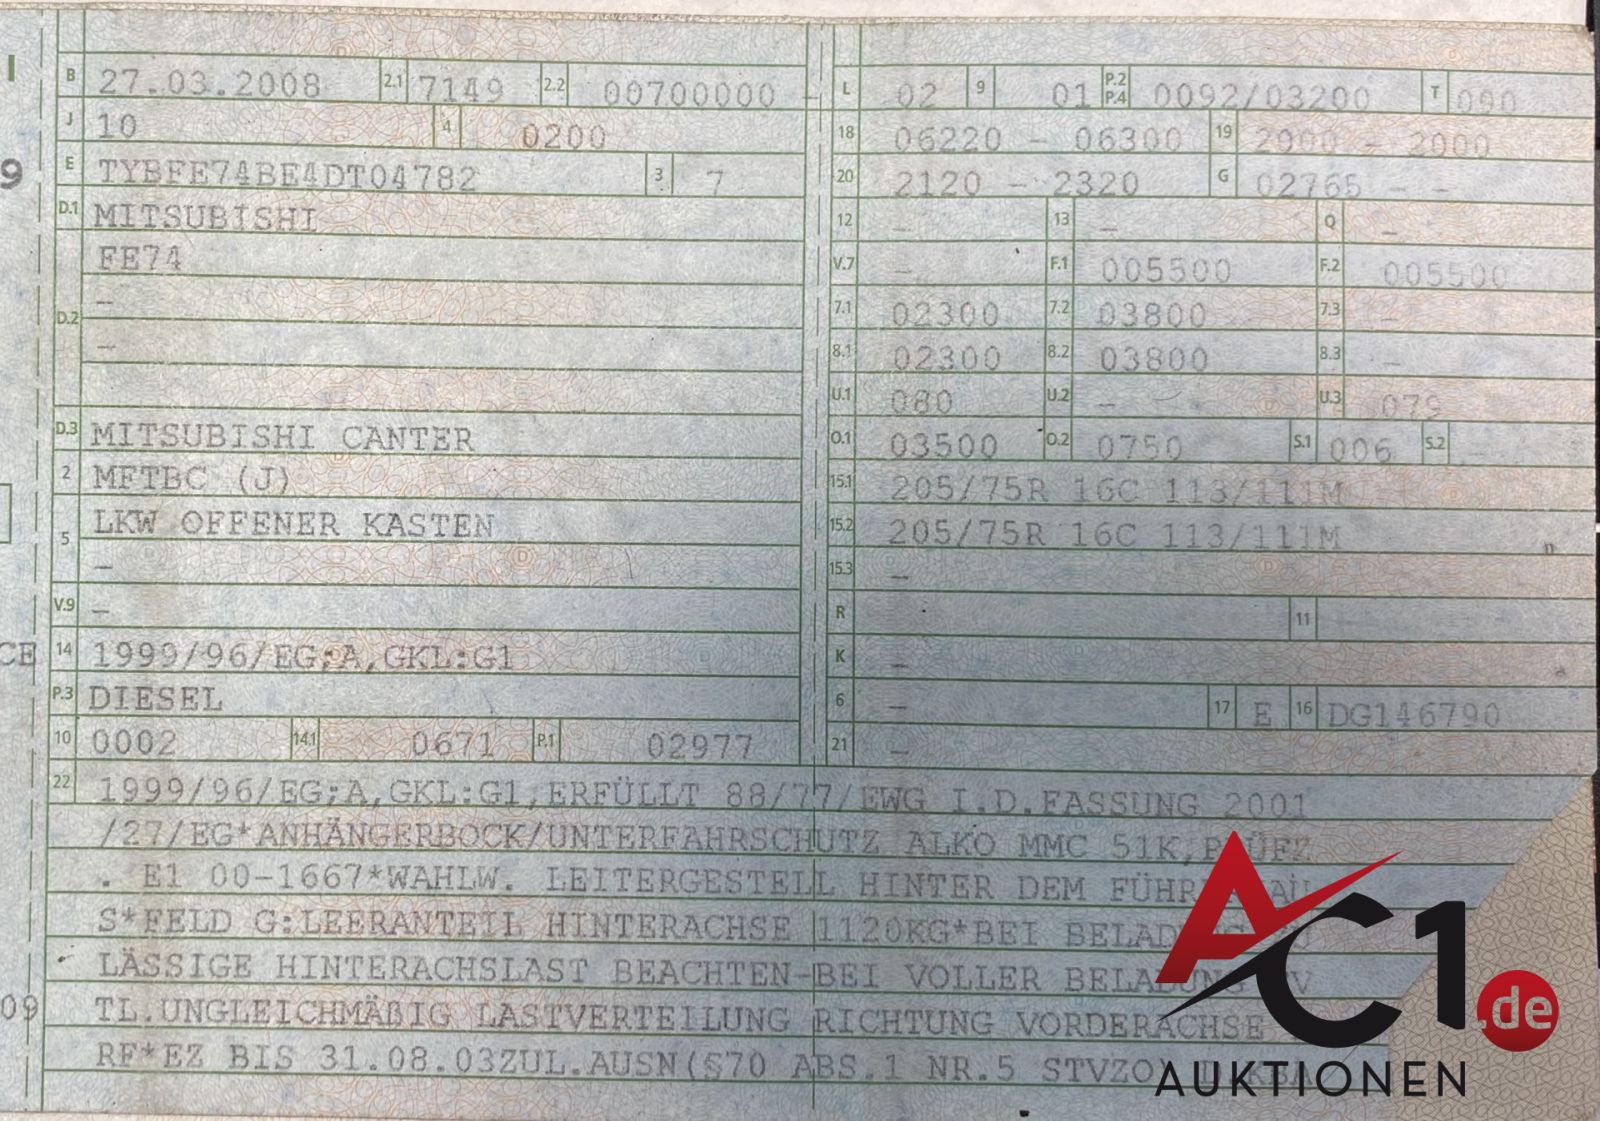 I
B 27.03.2008 2.1 7149 2.2 00700000 –
J 10 4 0200
9
E TYBFE74BE4DT04782 3 7
D.1 MITSUBISHI
FE74
–
D.2
–
D.3 MITSUBISHI CANTER
2 MFTBC (J)
5 LKW OFFENER KASTEN
–
V.9 –
CE
14 1999/96/EG;A,GKL:G1
P.3 DIESEL
10 0002 14.1 0671 P.1 02977
L 02 9 01 P.2 P.4 0092/03200 T 090
18 06220 – 06300 19 2000 – 2000
20 2120 – 2320 G 02765 – –
12 – 13 – Q –
V.7 – F.1 005500 F.2 005500
7.1 02300 7.2 03800 7.3 –
8.1 02300 8.2 03800 8.3 –
U.1 080 U.2 – U.3 079
O.1 03500 O.2 0750 S.1 006 S.2 –
15.1 205/75R 16C 113/111M
15.2 205/75R 16C 113/111M
15.3 –
R 11
K –
6 – 17 E 16 DG146790
21 –
22 1999/96/EG;A,GKL:G1,ERFÜLLT 88/77/EWG I.D.FASSUNG 2001
/27/EG*ANHÄNGERBOCK/UNTERFAHRSCHUTZ ALKO MMC 51K,PRÜFZ
. E1 00-1667*WAHLW. LEITERGESTELL HINTER DEM
S*FELD G:LEERANTEIL HINTERACHSE 1120KG*BEI
LÄSSIGE HINTERACHSLAST BEACHTEN-BEI VOLLER BELADUNG
09
TL.UNGLEICHMÄßIG LASTVERTEILUNG RICHTUNG VORDERACHSE
RF*EZ BIS 31.08.03ZUL.AUSN(§70 ABS.1 NR.5 STVZO)
AC1.de
AUKTIONEN